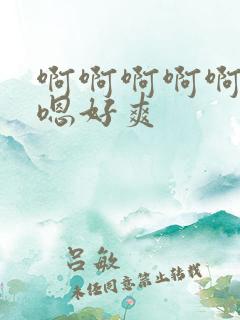 啊啊啊啊啊
嗯好爽
吕敏
未经同意禁止转载